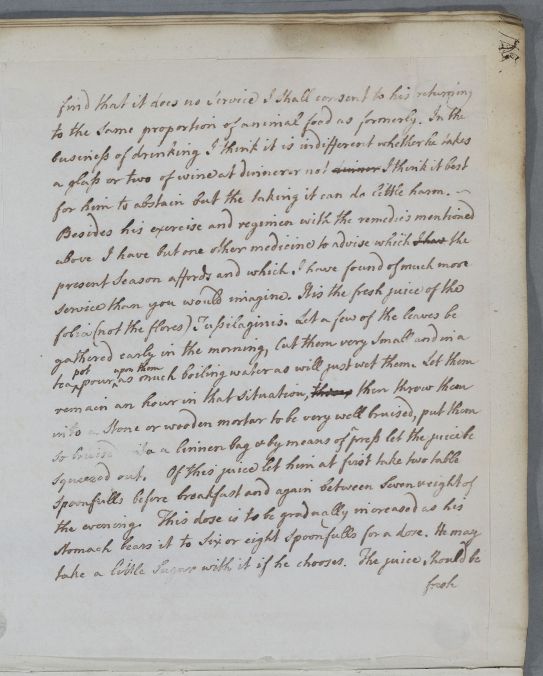 find that it does no Service I Shall consent to his returning
to the Same proportion of animal food as formerly. In the
business of drinking I think it is indifferent whether he takes
a glass or two of wine at dinner or not dinner I think it best
for him to abstain but the taking it can do little harm. —
Besides his exercise and regimen with the remedies mentioned
above I have but one other medicine to advise which I have the
present Season affords and which I have found of much more
Service than you would imagine. It is the fresh juice of the
folia (not the flores) Tussilaginis. Let a few of the leaves be
gathered early in the morning, Cut them very Small and in a
pot upon them
tea pour as much boiling water as will just wet them. Let them
remain an hour in that situation, then throw them
into a Stone or wooden mortar to be very well bruised, put them
so bruised into a linnen bag & by means of a press let the juice be
Squeezed out. Of this juice let him at first take two table
Spoonfulls before breakfast and again between Seven & eight of
the evening. This dose is to be gradually increased as his
Stomach bears it to Six or eight Spoonfulls for a dose. He may
take a little Sugar with it if he chooses. The juice Should be
fresh